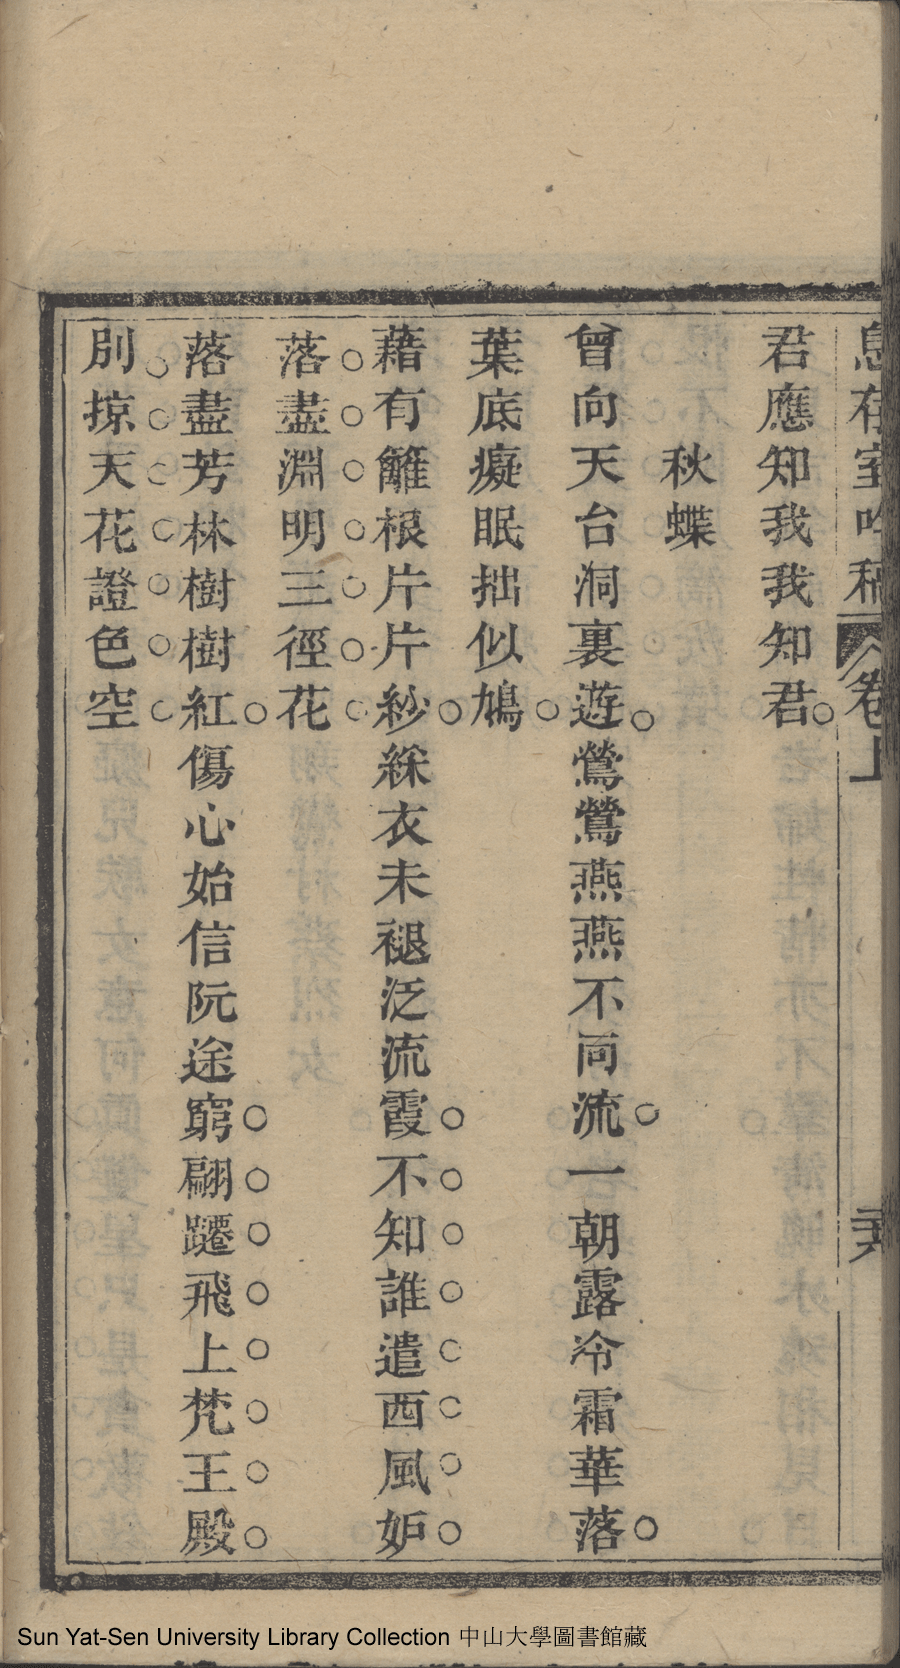 息存室吟稿 卷上
君應知我我知君
秋蝶
曾向天台洞裏遊鶯鶯燕燕不同流一朝露冷霜華落
葉底癡眠拙似鳩
藉有籬根片片紗綵衣未褪泛流霞不知誰遣西風妒
落盡淵明三徑花
落盡芳林樹樹紅傷心始信阮途窮翩躚飛上梵王殿
別掠天花證色空
Sun Yat-Sen University Library Collection 中山大學圖書館藏